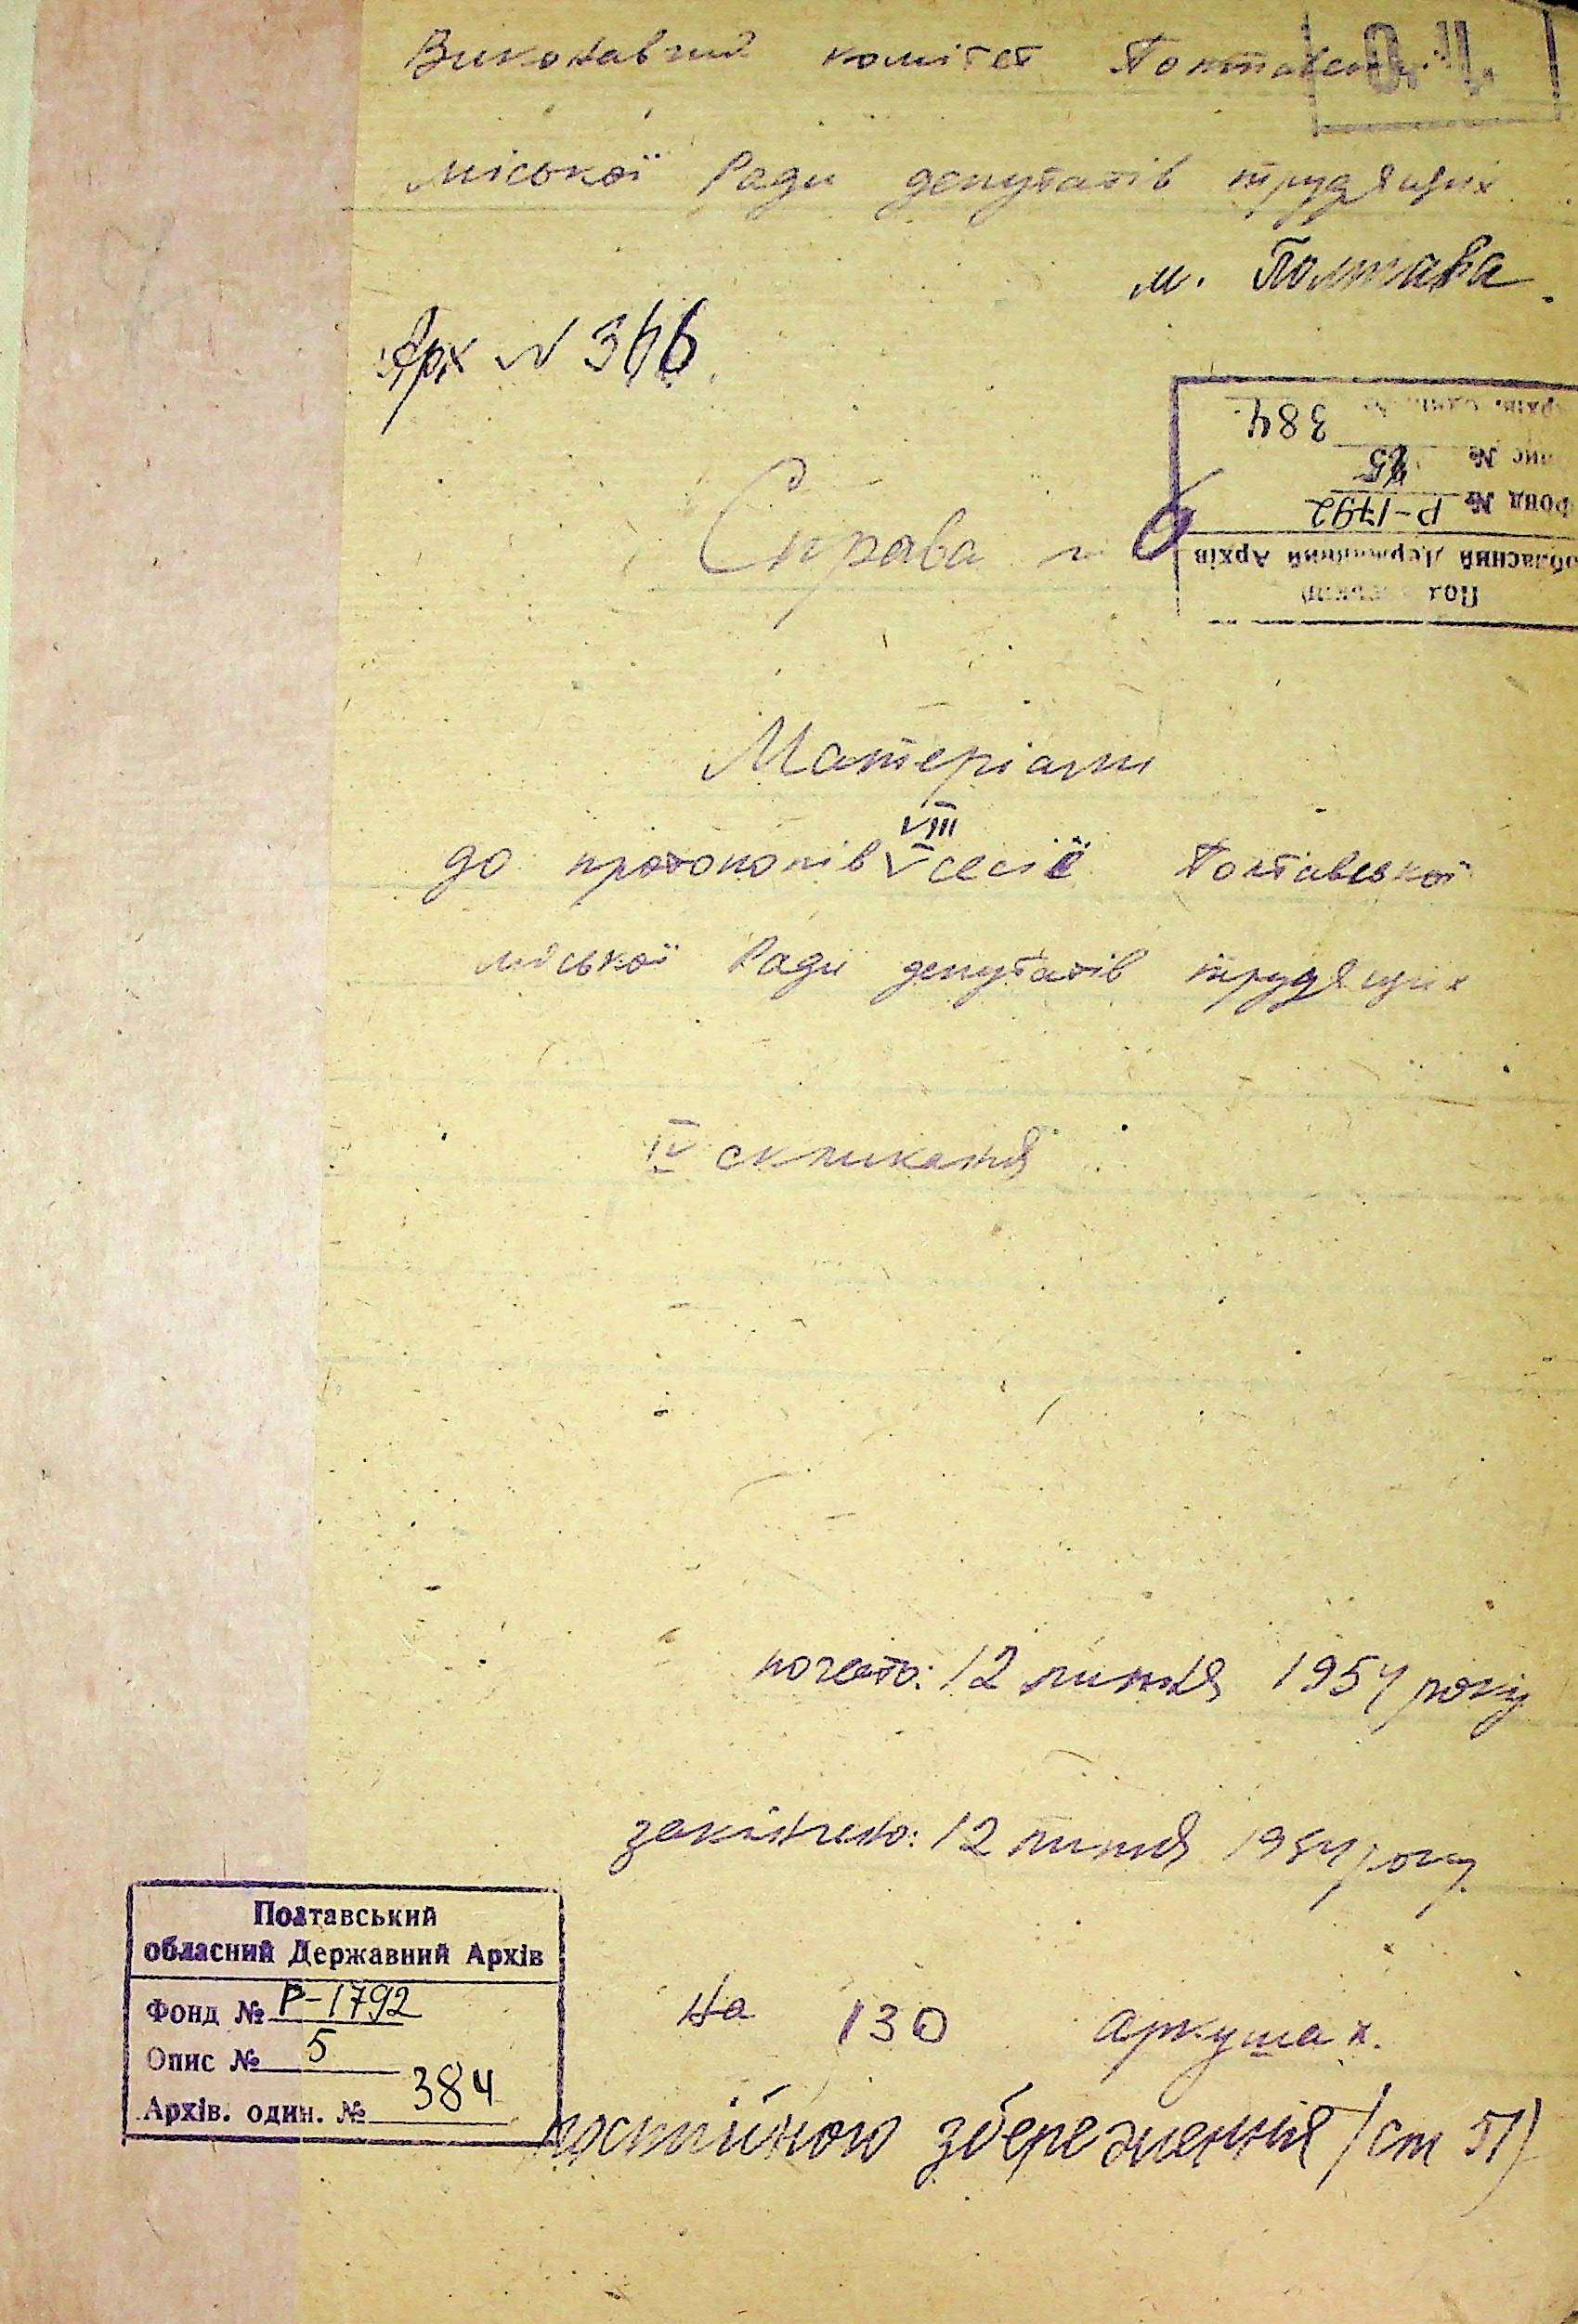 Виконавчий комітет Полтавської
О.Ц.
міської Ради депутатів трудящих
м. Полтава.
Арх N 366
Полтавський
обласний Державний Архів
Фонд № Р-1792
Опис № 5
Архів. один. № 384
Справа N 6
Матеріали
VIII
до протоколів V сесії Полтавської
міської Ради депутатів трудящих
IV скликання
почато: 12 липня 1954 року
закінчено: 12 липня 1954 року.
Полтавський
обласний Державний Архів
Фонд № Р-1792
Опис № 5
Архів. один. № 384
На 130 аркушах.
постійного збереження /ст 51/